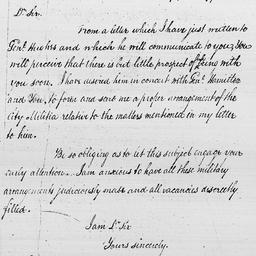 Dr Sir.
From a letter which I have just written to
Genl Hughes and which he will communicate to you, You
will perceive that there is but little prospect of being with
you soon. I have desired him in concert with Genl Hamilton
and You, to form and send me a proper arrangement of the
City Militia relative to the matters mentioned in my letter
to him.
Be so obliging as to let this subject engage your
early attention. I am anxious to have all these military
arrangements judiciously made and all vacancies discreetly
filled.
I am Dr Sir
Yours sincerely.